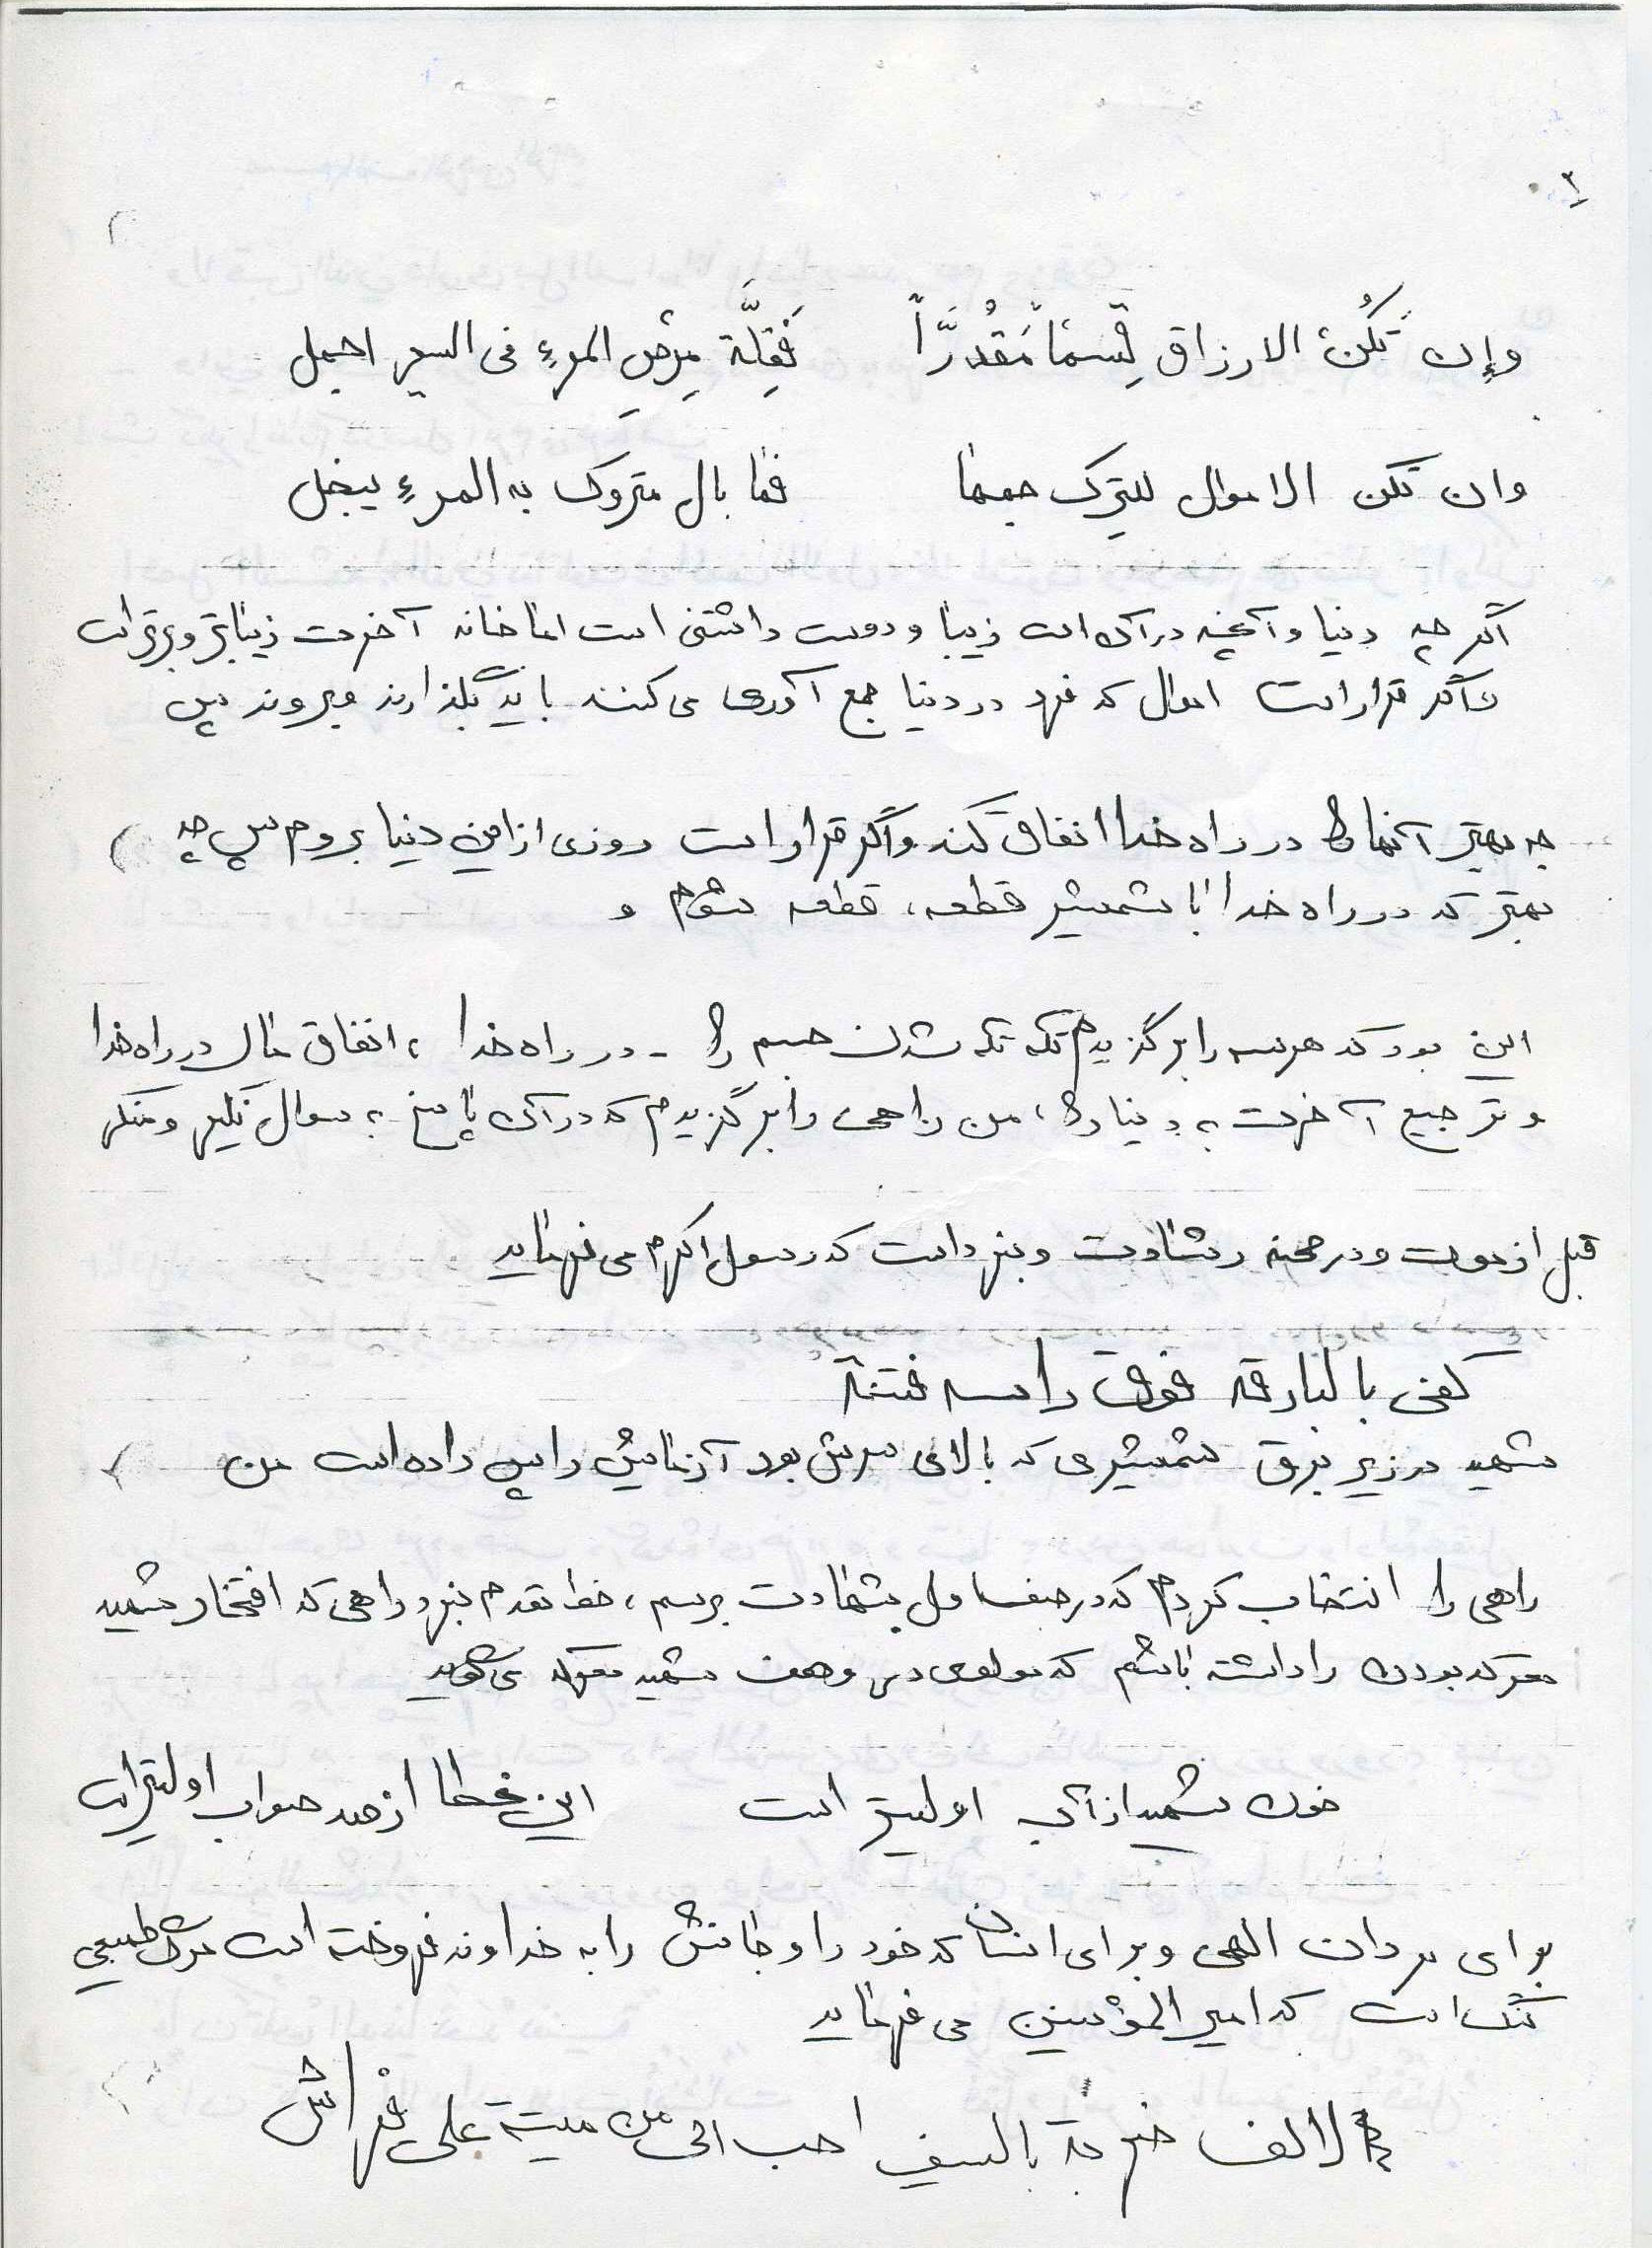 ۲
وإن تَكُن الارزاق قِسماً مُقدَّراً فَقِلَّة حِرصِ المرءِ فی السعی اجمل
وان تکن الاموال للترک جمعها فما بال متروک به المرءِ یبخل
اگر چه دنیا و آنچه در آن است زیبا و دوست داشتنی است اما خانه آخرت زیباتر و برتر است
و اگر قرار است اموال که فرد در دنیا جمع آوری می کنند باید بگذارند و بروند پس
چه بهتر آنها را در راه خدا انفاق کند و اگر قرار است روزی از این دنیا بروم پس چه
بهتر که در راه خدا با شمشیر قطعه، قطعه شوم و
این بود که هر سه را برگزیدم تکه تکه شدن جسم را - در راه خدا ، انفاق مال در راه خدا
و ترجیح آخرت به دنیا را، من راهی را برگزیدم که در آن پاسخ به سوال نکیر و منکر
قبل از موت و در صحنه رشادت و نبرد است که رسول اکرم می فرماید
کفی بالبارقه فوق راسه فتنة
شهید در زیر برق شمشیری که بالای سرش بود آزمایش را پس داده است من
راهی را انتخاب کردم که در صف اول بشهادت برسم، خط مقدم نبرد راهی که افتخار شهید
معرکه بودن را داشته باشم که مولوی در وصف شهید معرکه می گوید
خون شهید از آب اولیتر است این خطا از صد صواب اولیتر است
برای مردان الهی و برای انسان که خود را و جانش را به خداوند فروخته است مرگ طبیعی
ننگ است که امیر المؤمنین می فرماید
لالف ضربة بالسیف احب الی من میتة علی فراش